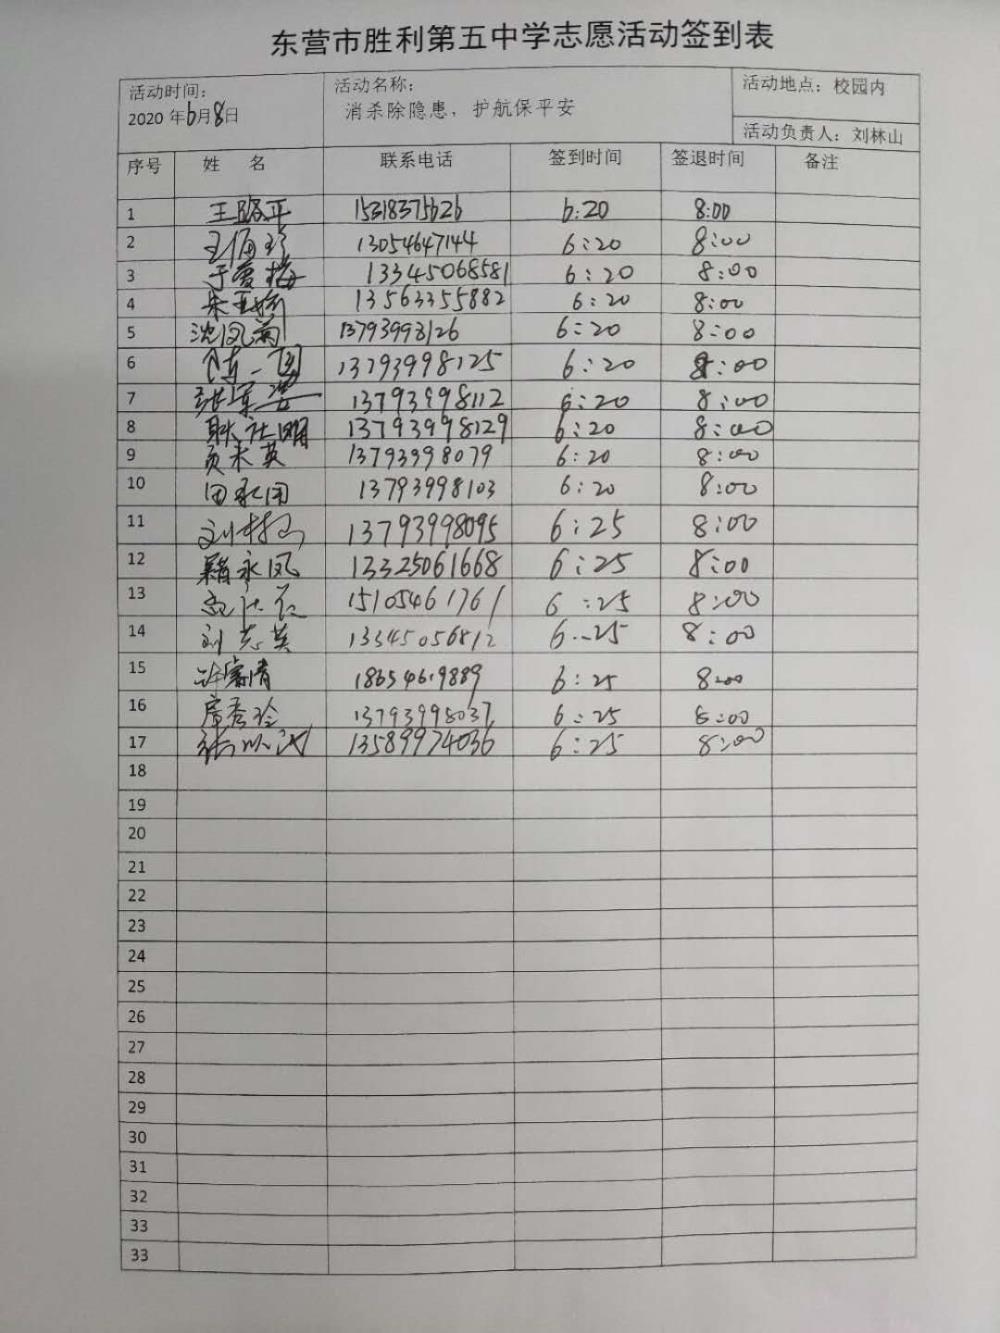 东营市胜利第五中学志愿活动签到表
活动时间： 活动名称： 活动地点：校园内
2020年6月8日 消杀除隐患，护航保平安
活动负责人：刘林山
序号 姓 名 联系电话 签到时间 签退时间 备注
1 王路平 15318375626 6:20 8:00
2 13054647144 6:20 8:00
3 于爱梅 13345068581 6:20 8:00
4 13563355882 6:20 8:00
5 沈凤菊 13793998126 6:20 8:00
6 13793998125 6:20 8:00
7 13793998112 6:20 8:00
8 耿社明 13793998129 6:20 8:00
9 贾来英 13793998079 6:20 8:00
10 13793998103 6:20 8:00
11 刘林山 13793998095 6:25 8:00
12 籍永凤 13325061668 6:25 8:00
13 15105461761 6:25 8:00
14 刘志英 13345056812 6:25 8:00
15 18654619889 6:25 8:00
16 席秀玲 13793998037 6:25 8:00
17 13589974036 6:25 8:00
18
19
20
21
22
23
24
25
26
27
28
29
30
31
32
33
33